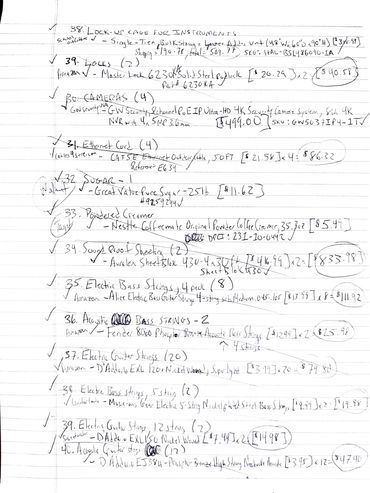 38. LOCK-UP CAGE FOR INSTRUMENTS
- Single-Tier Bulk Storage Locker Adder Unit (48"W x 60" x 90"H)
Shipping = 190.78
39. Locks (2)
Amazon - Master Lock 6230KA Solid Steel Padlock [$20.29] x 2 = [$40.58]
Part # 6230KA
30. CAMERAS (4)
- GW Security 4 Channel PoE IP Ultra-HD 4K Security Camera System, 8CH 4K
NVR with 4 x 5MP [$499.00] SKU: GW5037IP4-1TV
31. Ethernet Cord (4)
- CAT5E Ethernet Outdoor Cable, 50FT [$21.58] x 4 = $86.32
32. SUGAR - 1
Walmart - Great Value Pure Sugar - 25lb [$11.62]
#9259244
33. Powdered Creamer
Target - Nestle Coffeemate Original Powder Coffee Creamer, 35.3oz [$5.49]
DPCI: 231-10-0442
34. Sound Proof Sheeting (2)
- Auralex SheetBlok 430 - 4 x 30ft [$416.99] x 2 = [$833.98]
SheetBlok430
35. Electric Bass Strings, 4 pack (8)
Amazon - Alice Electric Bass Guitar Strings 4-string set Medium .045-.105 [$13.99] x 8 = $111.92
36. Acoustic BASS STRINGS - 2
Amazon - Fender 8060 Phosphor Bronze Acoustic Bass Strings [$12.99] x 2 = $25.98
↑ 4 strings
37. Electric Guitar Strings (20)
Amazon - D'Addario EXL 120 Nickel Wound, Super Light [$3.99] x 20 = $79.80
38. Electric Bass strings, 5 string (2)
- Musicians Gear Electric 5-String Nickel plated Steel Bass Strings [$9.99] x 2 = $19.98
39. Electric Guitar Strings, 12 string (2)
- D'Addario EXL150 Nickel Wound [$7.49] x 2 = $14.98
40. Acoustic Guitar strings (12)
- D'Addario EJ38H - Phosphor Bronze High Strung Nashville Acoustic [$3.95] x 12 = $47.40